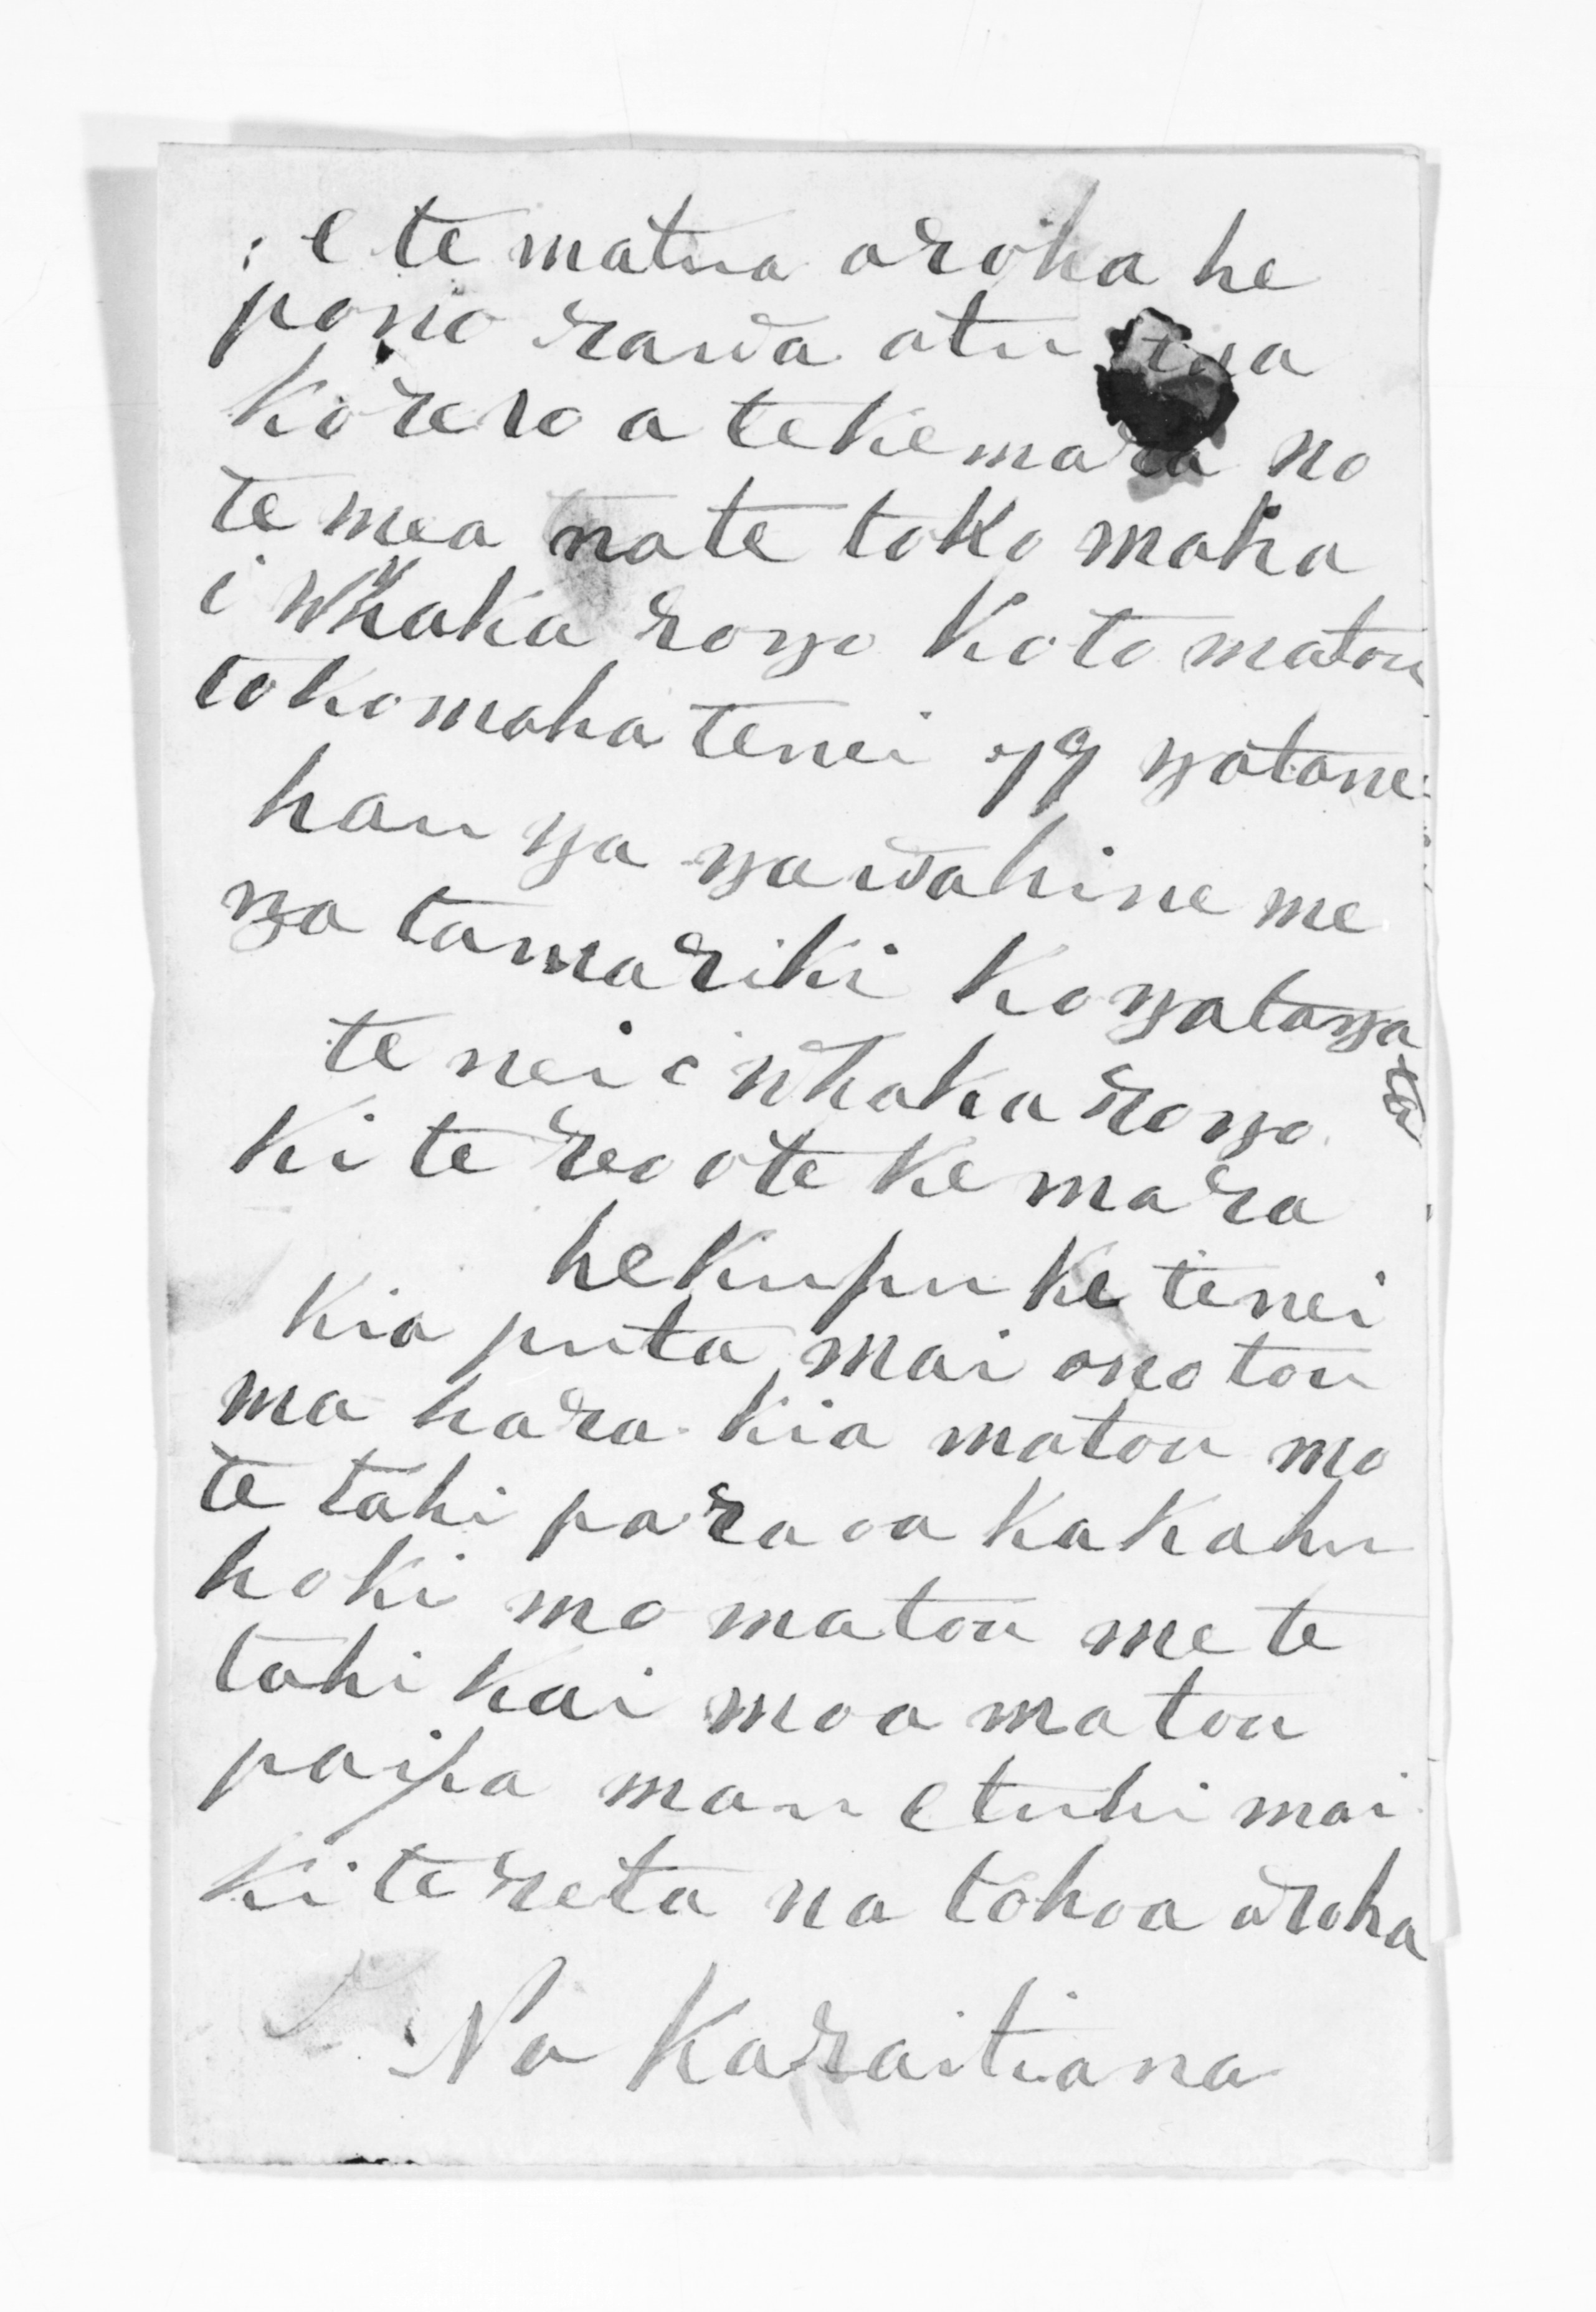 e te matua aroha he
pono rawa atu
korero a te Kemara no
te mea na te toko maha
i whaka rongo Ko to matou
tokomaha tenei 79 ngatane
haunga ngawahine me
nga tamariki Ko ngatangata
tenei i whaka rongo
Ki te reo ote Kemara
he Kupu Ke tenei
Kia puta mai ono tou
ma hara Kia matou mo
te tahi paraoa Kakahu
hoki mo matou me te
tahi Kai moa matou
paipa mau e tuhi mai
Ki te reta na tohoa aroha
Na Karaitiana